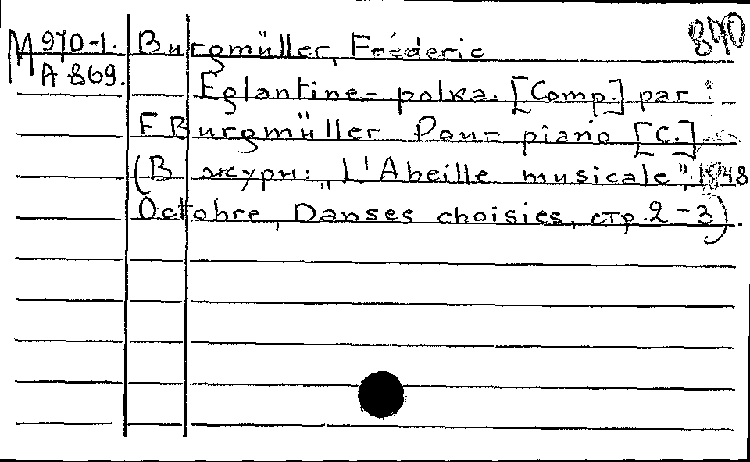 M 970-1. Burgmüller, Fréderic 840
A 869.
Eglantine-polka. [Comp.] par
F Burgmüller Pour piano [С.]
(В журн: „L'Abeille musicale", 1848
Octobre, Danses choisies, стр. 2-3)